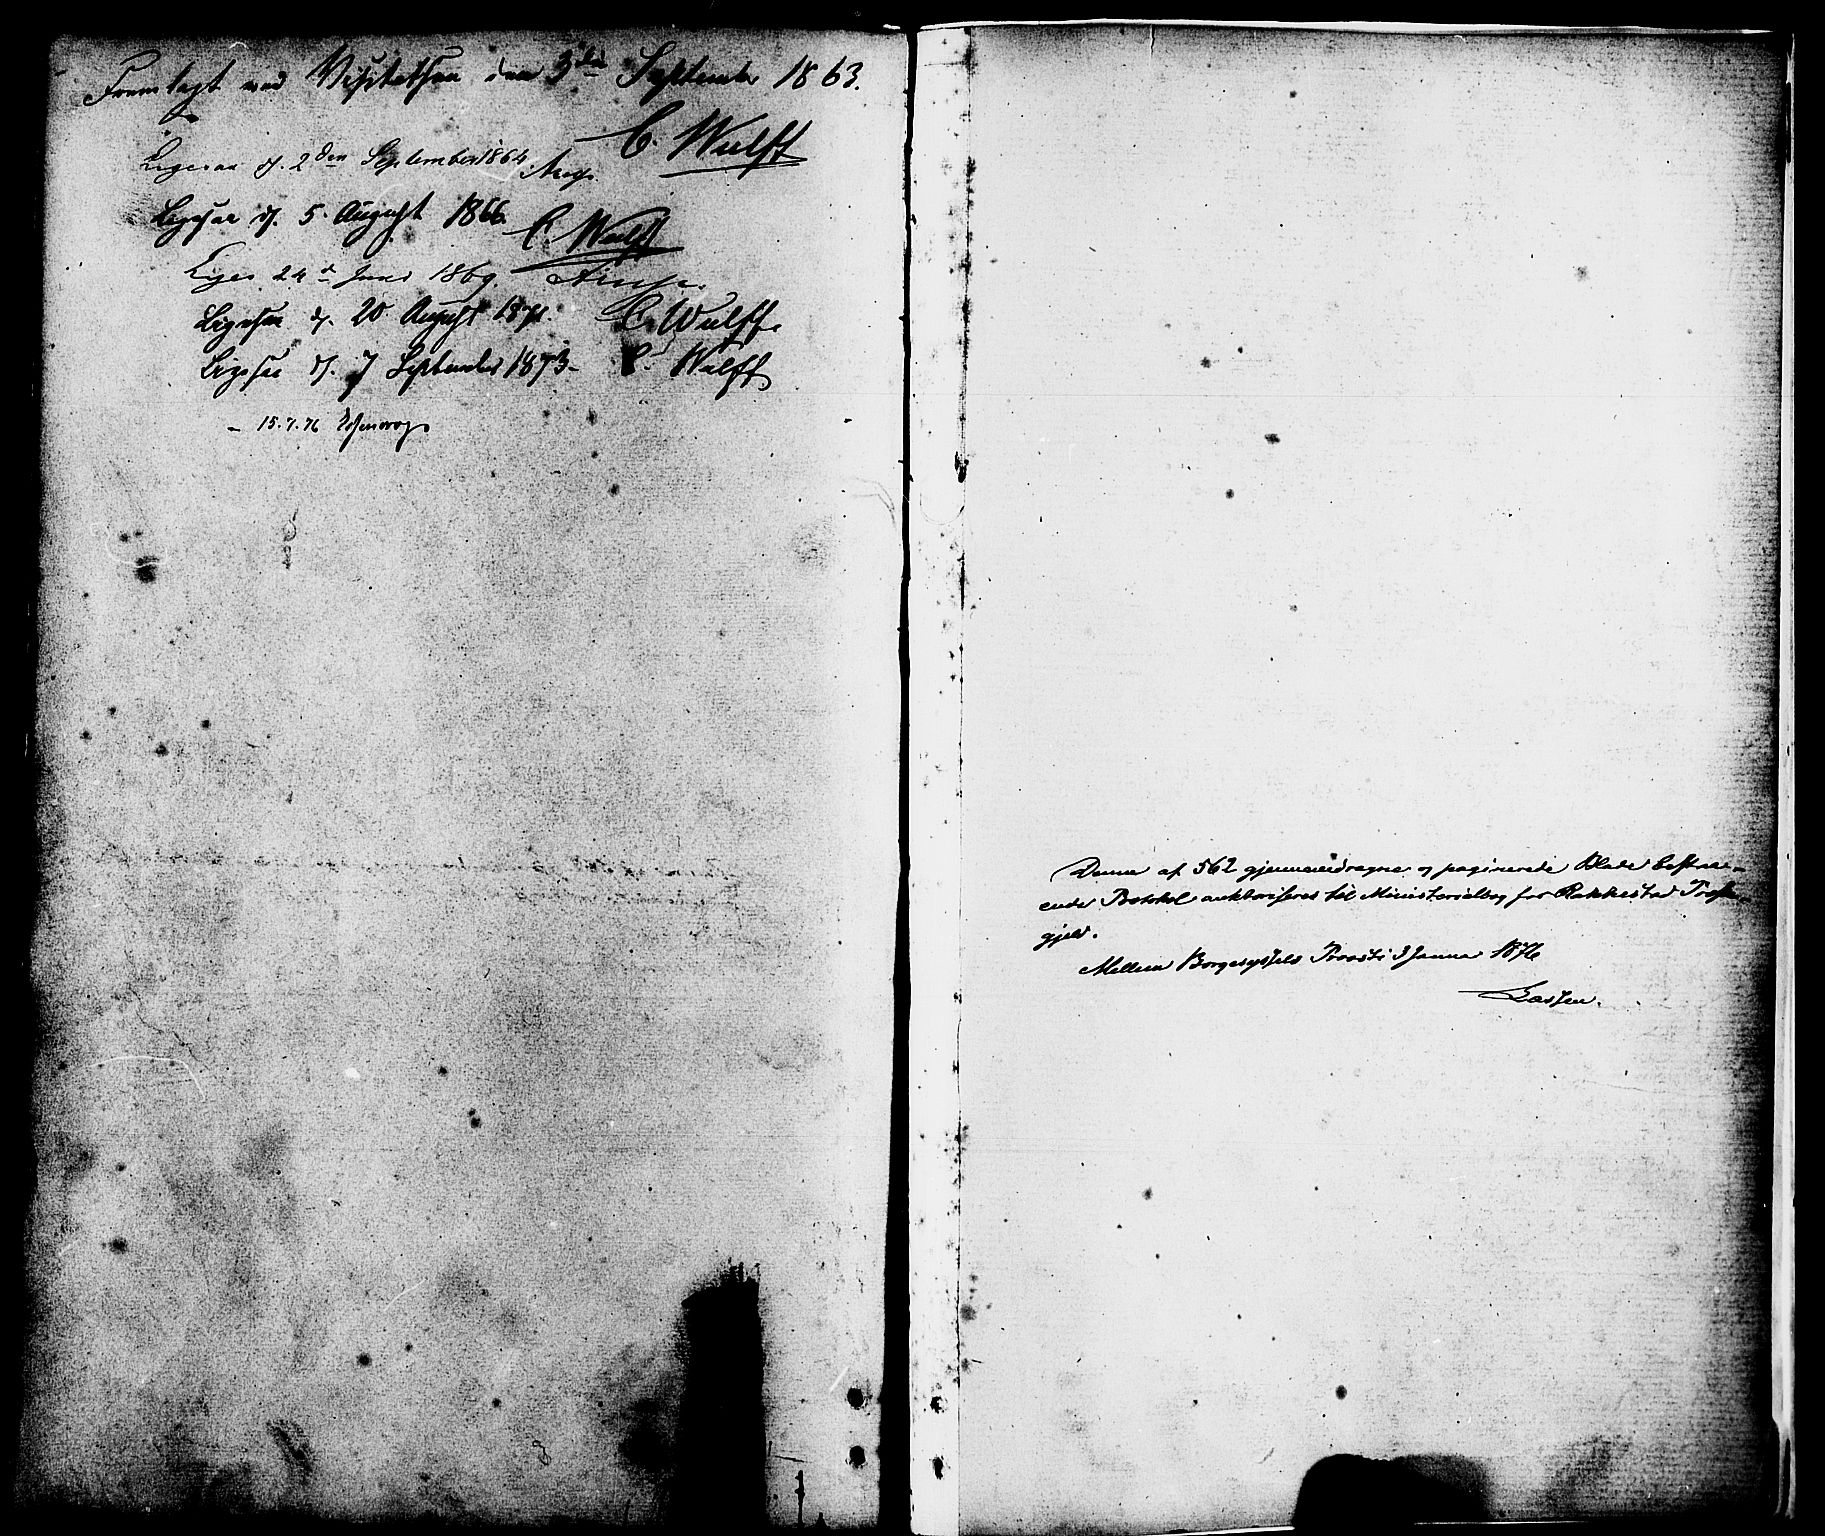 Fremlagt ved Visitatsen den 3die September 1863.
C. Wulff
Ligesaa d. 2den September 1864. Arup.
Ligesaa d. 5. August 1866. C. Wulff
Liges. 24d Juni 1869. Arup.
Ligesaa d. 20 August 1871. C. Wulff.
Ligesaa d. 7 September 1873. C. Wulff
- 15.7.76
Denne af 562 gjennemdragne og paginerede Blade bestaa-
ende Protokol auktoriseres til Ministerialbog for Rakkestad Præste-
gjeld.
Mellem Borgesyssels Provsti 3 Januar 1876
Lassen.